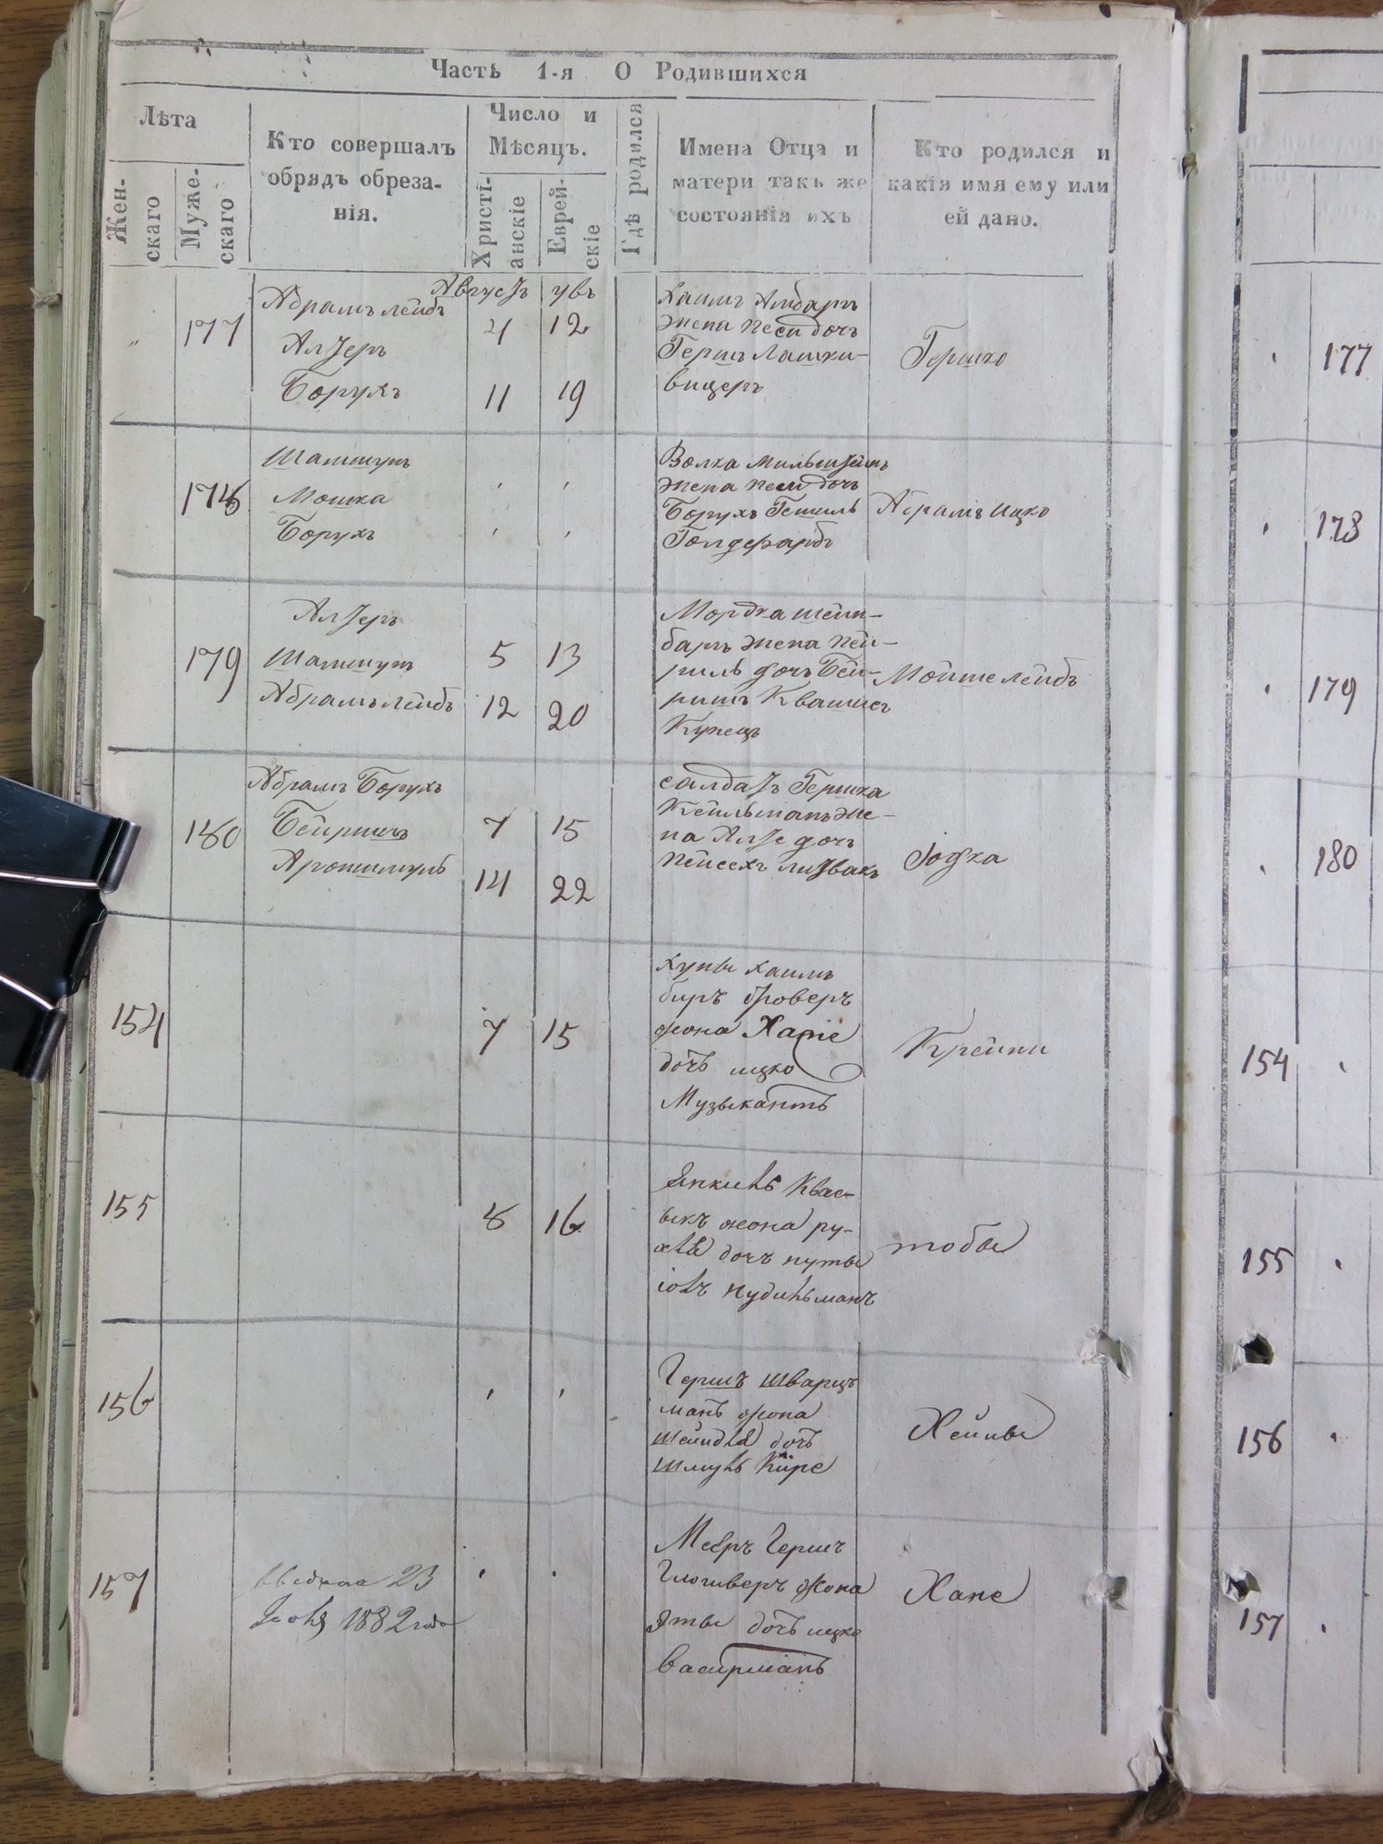 Часть 1-я О Родившихся
Лѣта
Жен-
скаго
Муже-
скаго
Кто совершалъ
обрядъ обреза-
нія.
Число и
Мѣсяцъ.
Христі-
анскіе
Еврей-
скіе
Гдѣ родился
Имена Отца и
матери такъ же
состоянія ихъ
Кто родился и
какія имя ему или
ей дано.
Августъ увъ
177
Абрамъ лейбъ
Алтеръ
Борухъ
4 12
11 19
Хаимъ Амбаръ
жена песи дочь
Гершъ Лашки-
вицеръ
Гершко
177
178
Шамшунъ
Мошка
Борухъ
Волка Мильштейнъ
жена песи дочь
Борухъ Гешиль
Голдфарбъ
Абрамъ Ицко
178
179
Алтеръ
Шамшунъ
Абрамъ лейбъ
5 13
12 20
Мордка шейн-
баръ жена пей-
риль дочь Бей-
ришъ Квашнег
Купецъ
Мойше лейбъ
179
180
Абрамъ Борухъ
Бейришъ
Ароншмуль
7 15
14 22
салдатъ Гершка
Кейльманъ же-
на Алте дочь
пейсехъ литвакъ
Іодка
180
154
7 15
Хаимъ
жона Хапе
дочъ ицко
Музыкантъ
Крейни
154
155
8 16
Янкиль Квас-
ыкъ жона ру-
хля дочъ нуты
іовъ нудильманъ
тобы
155
156
Гершъ Шварцъ
манъ жона
шейндля дочъ
шмуль
Хейвы
156
157
23
1882 года
Мееръ Гершъ
жона
Эты дочъ ицко
васирманъ
Хане
157